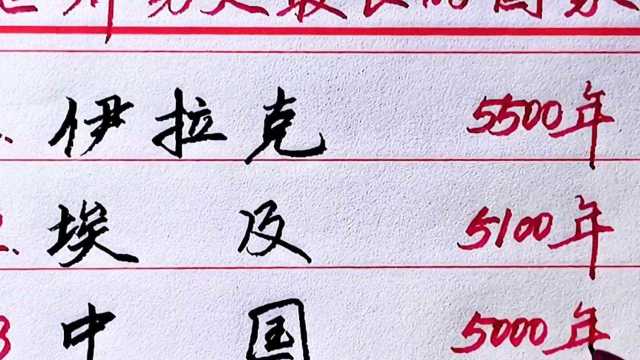 世界历史最长的国家
1. 伊拉克 5500年
2. 埃及 5100年
3 中国 5000年